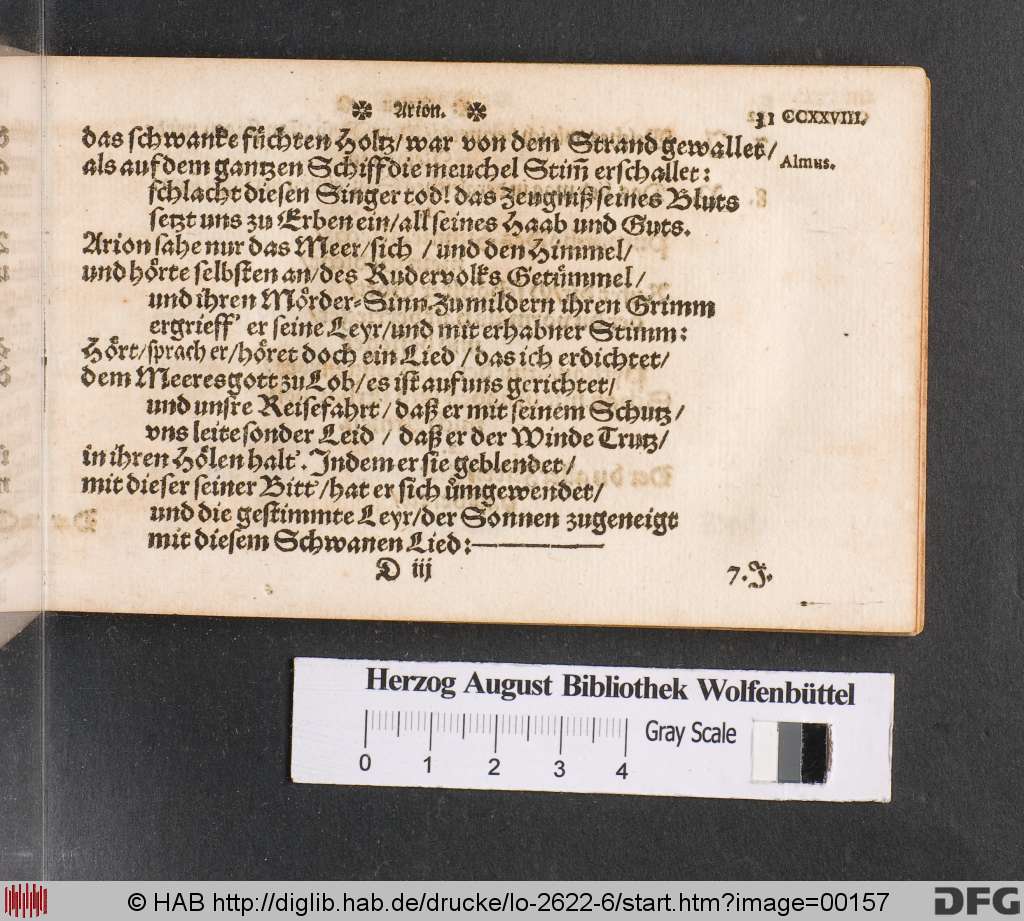 ✲ Arion. ✲
31 CCXXVIII.
das schwanke füchten Holtz/war von dem Strand gewallet/
Almus.
als auf dem gantzen Schiff die meuchel Stim̃ erschallet:
schlacht diesen Singer tod! das Zeugniß seines Bluts
setzt uns zu Erben ein/all seines Haab und Guts.
Arion sahe nur das Meer/sich /und den Himmel/
und hörte selbsten an/des Rudervolks Getümmel/
und ihren Mörder-Sinn. Zu mildern ihren Grimm
ergrieff' er seine Leyr/und mit erhabner Stimm:
Hört/sprach er/höret doch ein Lied /das ich erdichtet/
dem Meeresgott zu Lob/es ist auf uns gerichtet/
und unsre Reisefahrt/ daß er mit seinem Schutz/
vns leite sonder Leid / daß er der Winde Trutz/
in ihren Hölen halt'. Indem er sie geblendet/
mit dieser seiner Bitt'/hat er sich ümgewendet/
und die gestimmte Leyr/der Sonnen zugeneigt
mit diesem Schwanen Lied:
D iij
7.J.
Herzog August Bibliothek Wolfenbüttel
Gray Scale
0 1 2 3 4
© HAB http://diglib.hab.de/drucke/lo-2622-6/start.htm?image=00157
DFG